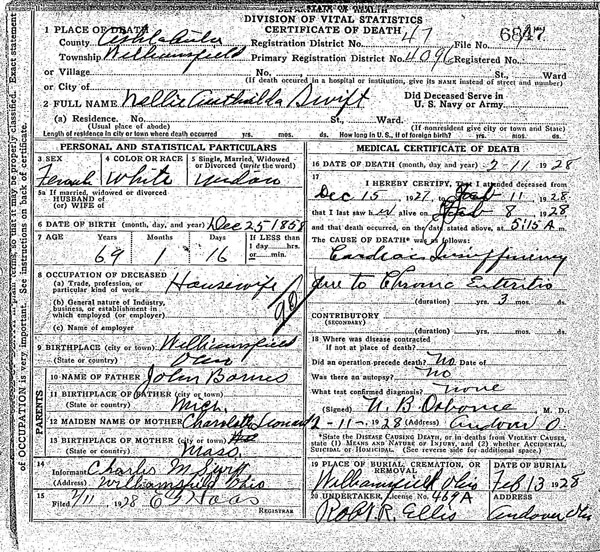 STATE OF HEALTH
DIVISION OF VITAL STATISTICS
CERTIFICATE OF DEATH
1 PLACE OF DEATH
County Ashtabula Registration District No. 47 File No. 6847
Township Williamsfield Primary Registration District No. 4096 Registered No.
or Village No. St., Ward
(If death occurred in a hospital or institution, give its NAME instead of street and number)
or City of
2 FULL NAME Nellie Swift Did Deceased Serve in
U. S. Navy or Army.
(a) Residence. No. St., Ward.
(Usual place of abode) (If nonresident give city or town and State)
Length of residence in city or town where death occurred yrs. mos. ds. How long in U. S., if of foreign birth? yrs. mos. ds.
PERSONAL AND STATISTICAL PARTICULARS
3 SEX 4 COLOR OR RACE 5 Single, Married, Widowed
or Divorced (write the word)
Female White Widow
5a If married, widowed or divorced
HUSBAND of
(or) WIFE of
6 DATE OF BIRTH (month, day, and year) Dec 25 1858
7 AGE Years Months Days If LESS than
1 day, hrs.
or min.
69 1 16
8 OCCUPATION OF DECEASED
(a) Trade, profession, or
particular kind of work Housewife
(b) General nature of Industry,
business, or establishment in
which employed (or employer) 90
(c) Name of employer
9 BIRTHPLACE (city or town) Williamsfield
(State or country) Ohio
PARENTS
10 NAME OF FATHER John Barnes
11 BIRTHPLACE OF FATHER (city or town)
(State or country) Mich.
12 MAIDEN NAME OF MOTHER Charolotte Leonard
13 BIRTHPLACE OF MOTHER (city or town)
(State or country) Mass.
14
Informant Charles M Swift
(Address) Williamsfield Ohio
15
Filed 2/11 1928 E G Haas
REGISTRAR
MEDICAL CERTIFICATE OF DEATH
16 DATE OF DEATH (month, day and year) 2-11- 1928
17
I HEREBY CERTIFY, That I attended deceased from
Dec 15, 1927, to Feb 11, 1928
that I last saw her alive on Feb 8, 1928
and that death occurred, on the date stated above, at 5:15 A m.
The CAUSE OF DEATH* was as follows:
Cardiac Insufficiency
due to Chronic Enteritis
(duration) yrs. 3 mos. ds.
CONTRIBUTORY
(SECONDARY)
(duration) yrs. mos. ds.
18 Where was disease contracted
if not at place of death?
Did an operation precede death? No Date of
Was there an autopsy? No
What test confirmed diagnosis? none
(Signed) B Osborne, M. D.
2-11-, 1928 (Address) Andover O.
*State the DISEASE CAUSING DEATH, or in deaths from VIOLENT CAUSES,
state (1) MEANS AND NATURE OF INJURY, and (2) whether ACCIDENTAL,
SUICIDAL or HOMICIDAL. (See reverse side for additional space.)
19 PLACE OF BURIAL, CREMATION, OR DATE OF BURIAL
REMOVAL
Williamsfield Ohio Feb 13 1928
20 UNDERTAKER, License No. 469A ADDRESS
Robt. R. Ellis Andover Ohio
so that it may be properly classified. Exact statement
of OCCUPATION is very important. See instructions on back of certificate.